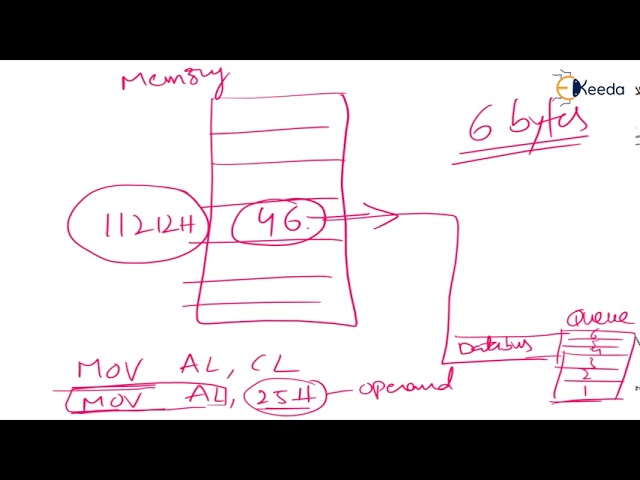 Memory
Ekeeda
6 bytes
11212H
46
Queue
6
5
4
3
2
1
Databus
MOV AL, CL
MOV AL, 25H operand